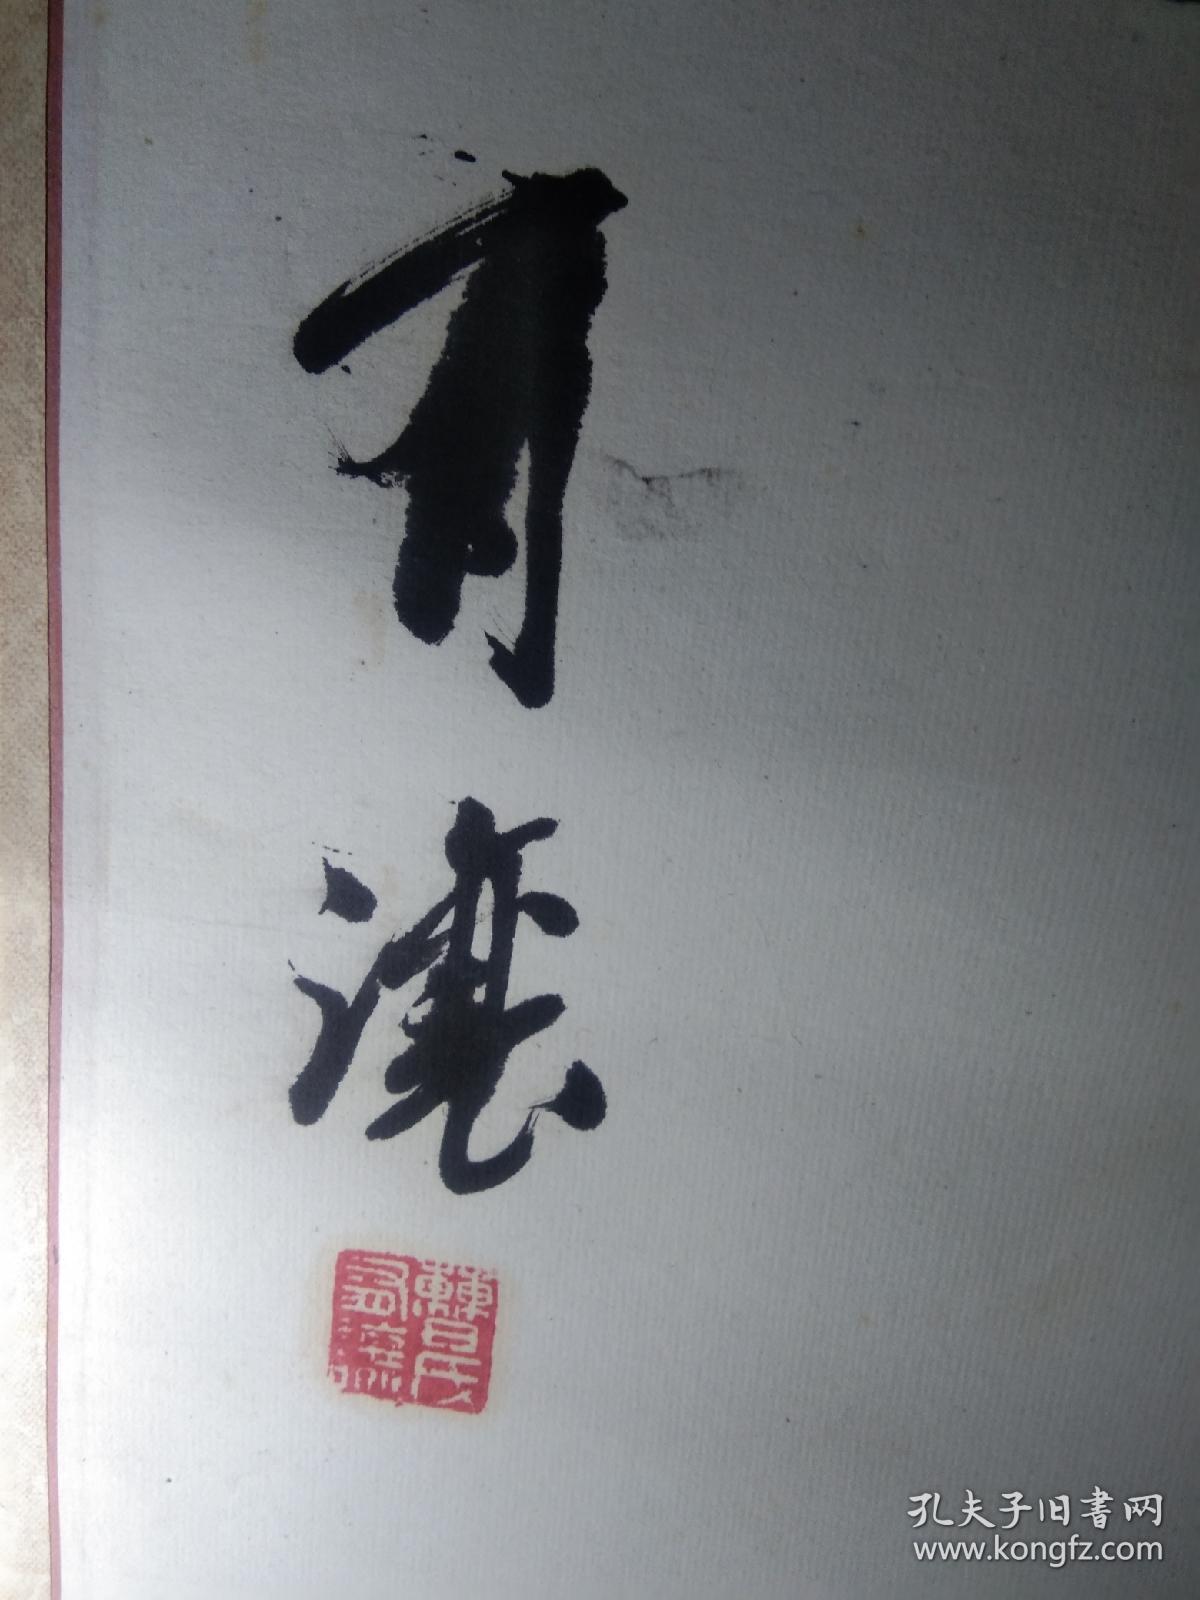 有
曹氏
有
孔夫子旧書网
www.kongfz.com